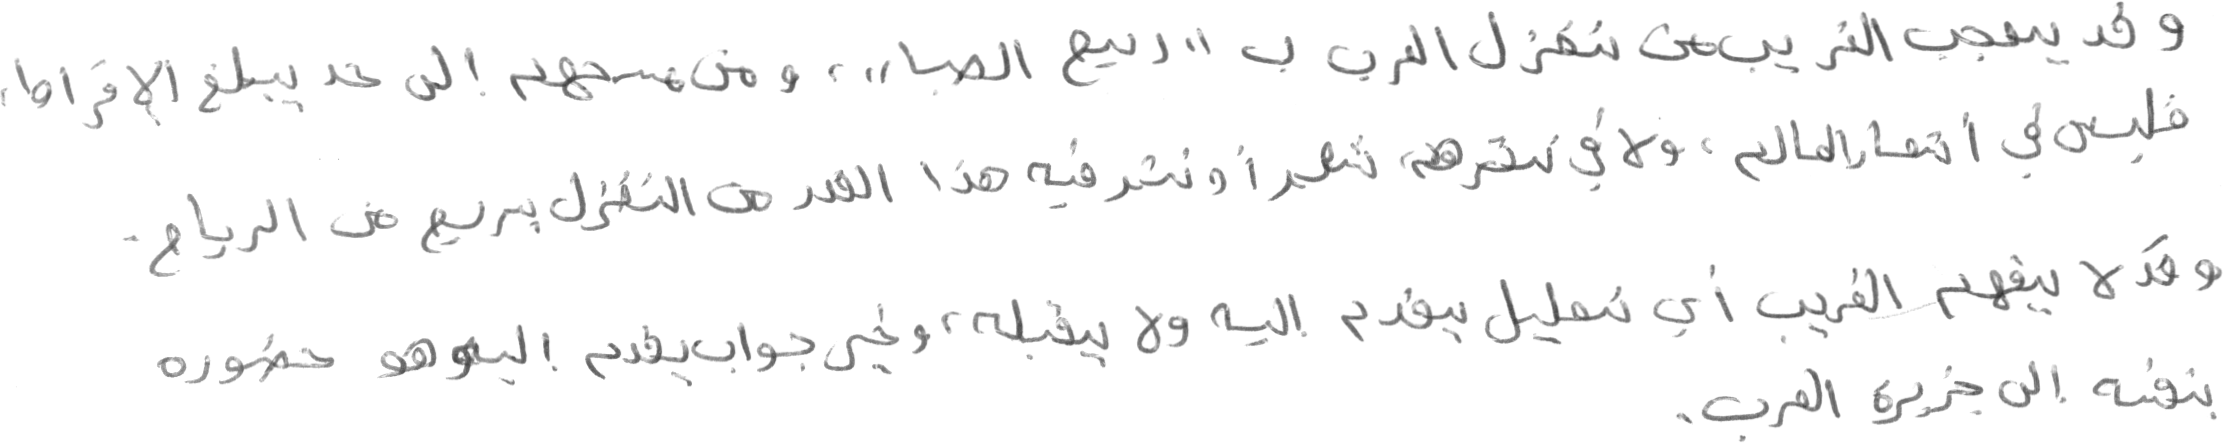 وقد يعجب الغريب من تغزل العرب ب "ريح الصبا"، ومن مدحهم إلى حد يبلغ الإفراط،
فليس في أشعار العالم، ولا في نثرهم، شعر أو نثر فيه هذا القدر من التغزل بريح من الرياح.
وقد لا يفهم الغريب أي تعليل يقدم اليه ولا يقبله، وخير جواب يقدم اليه هو حضوره
بنفسه إلى جزيرة العرب.